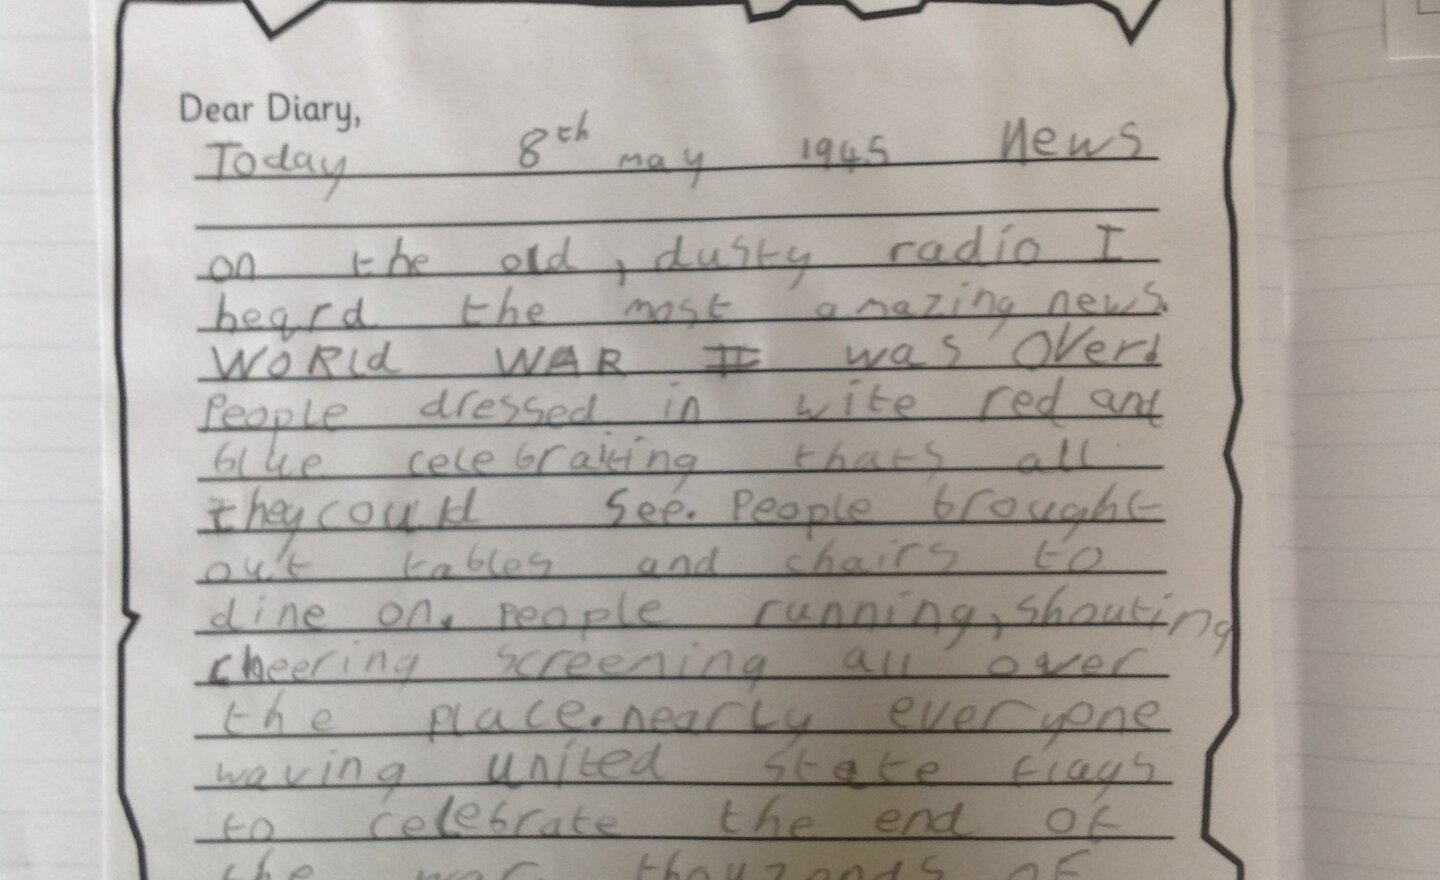 Dear Diary,
Today 8th may 1945 News
on the old, dusty radio I
heard the most amazing news.
WORLd WAR II was Over!
People dressed in wite red and
blue celebraiting thats all
they could see. People brought
out tables and chairs to
dine on. People running, shouting
cheering screeming all over
the place. nearly everyone
waving united state flags
to celebrate the end of
the war thouzands of